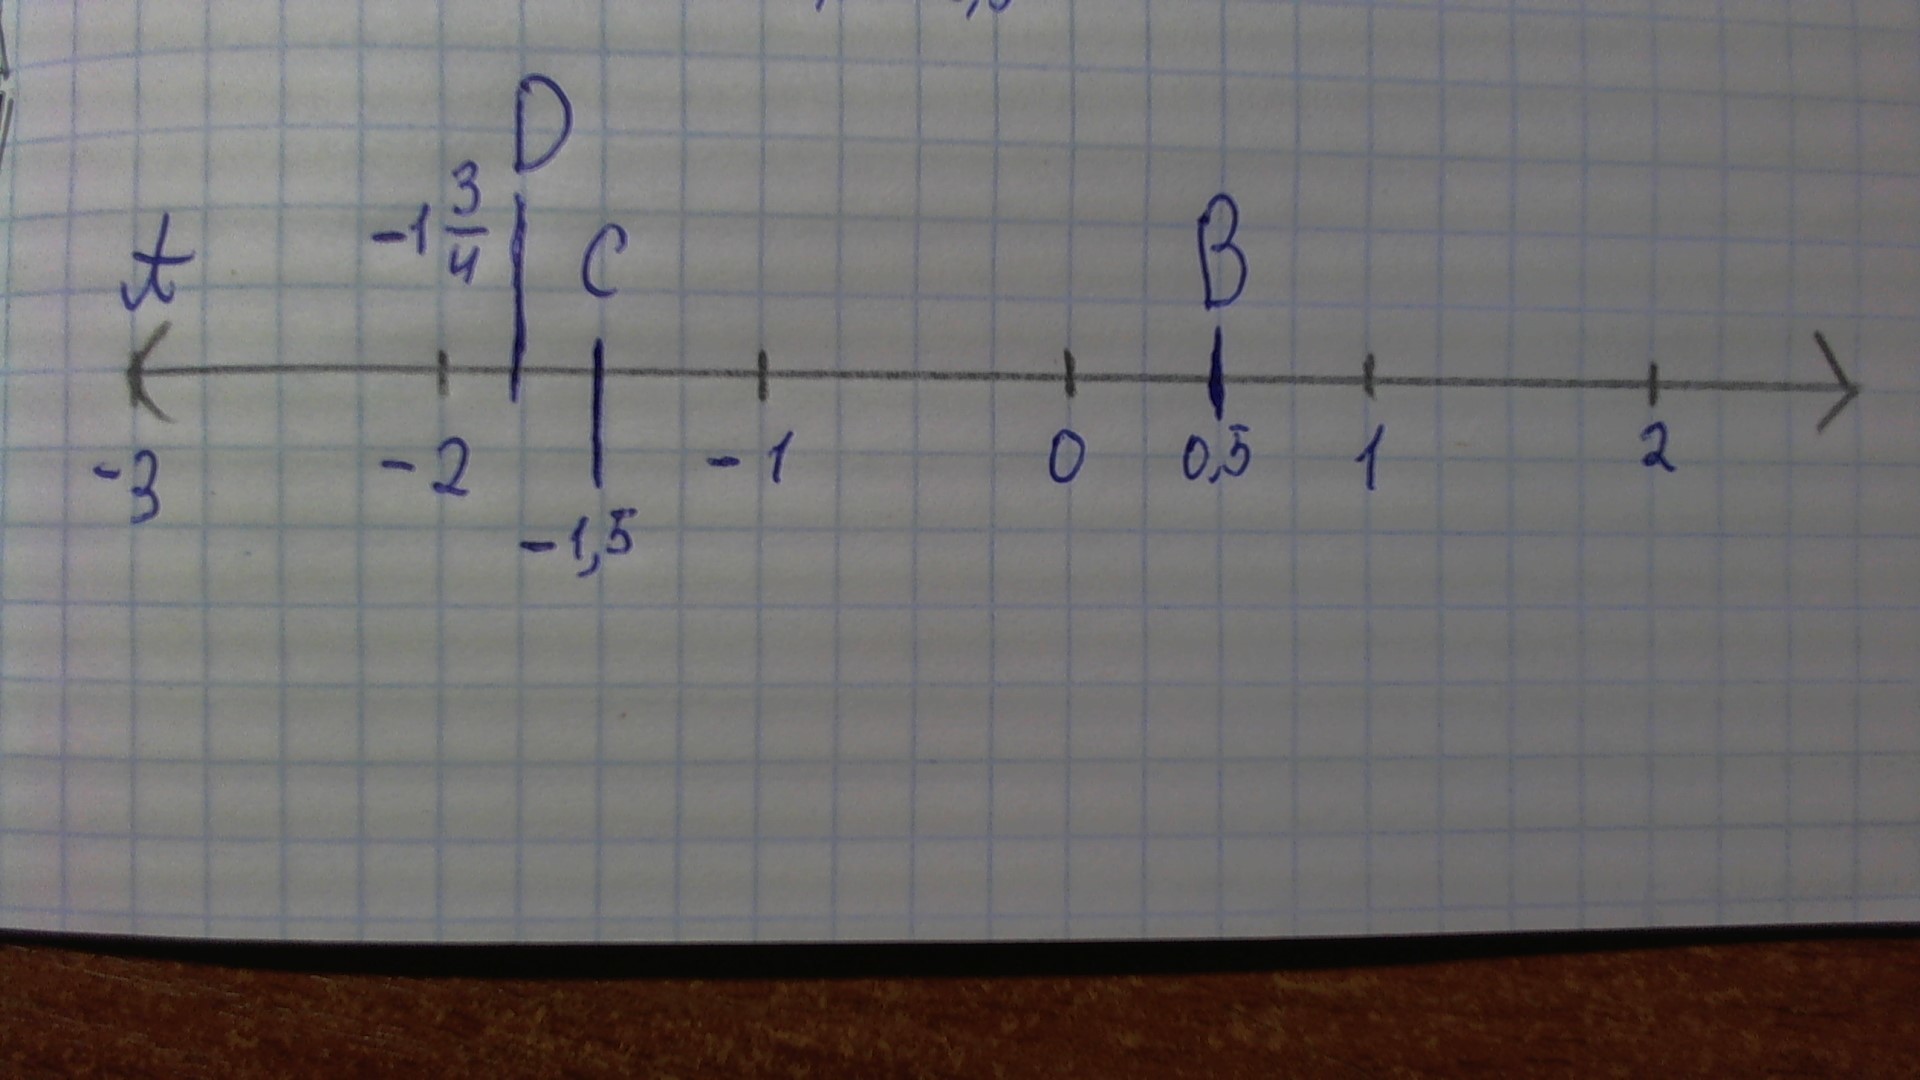 D
-1 3/4
A C B
-3 -2 -1 0 0,5 1 2
-1,5